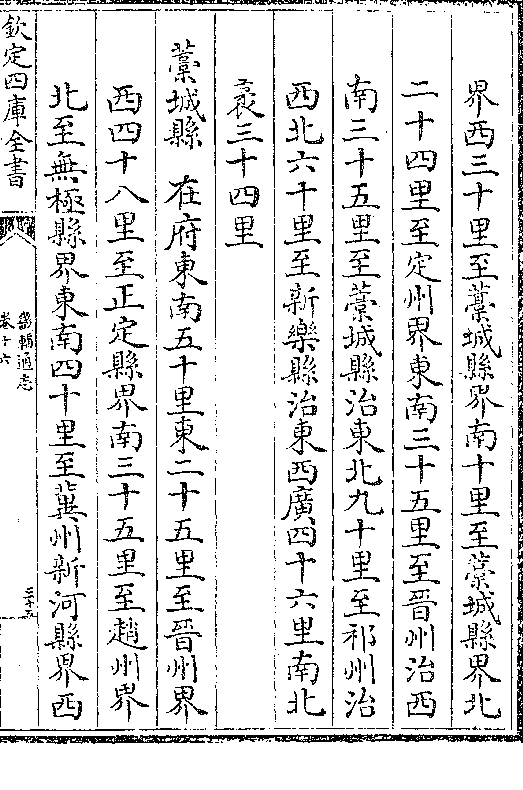 界西三十里至藁城縣界南十里至藁城縣界北
二十四里至定州界東南三十五里至晉州治西
南三十五里至藁城縣治東北九十里至祁州治
西北六十里至新樂縣治東西廣四十六里南北
袤三十四里
藁城縣 在府東南五十里東二十五里至晉州界
西四十八里至正定縣界南三十五里至趙州界
北至無極縣界東南四十里至冀州新河縣界西
欽定四庫全書
畿輔通志
卷十六
三十五